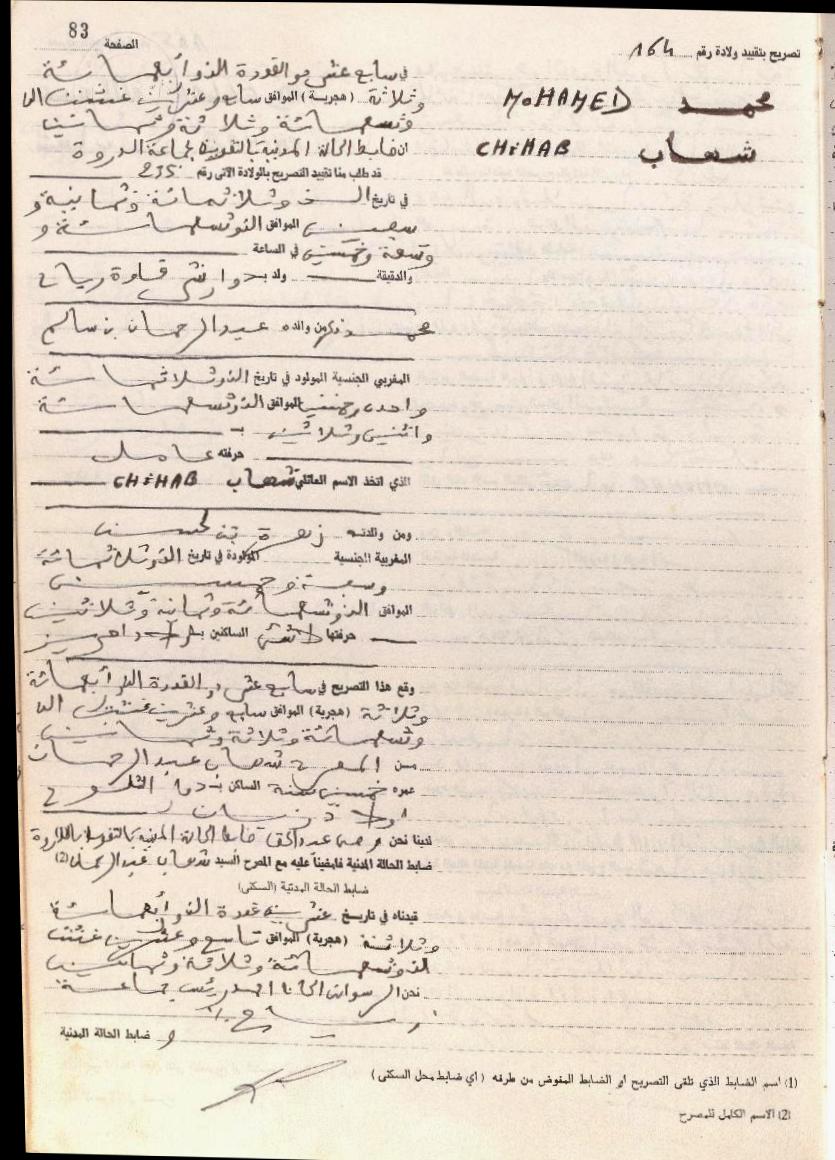 83
الصفحة
تصريح بتقييد ولادة رقم 164
محمد MOHAMED
شعاب CHiHAB
في سابع عشر ذو القعدة الف وأربعمائة
وثلاثة (هجرية) الموافق سابع وعشرين غشت الف
وتسعمائة وثلاثة وثمانين
ان ضابط الحالة المدنية بالتفويض بجماعة
قد طلب منا تقييد التصريح بالولادة الآتي رقم 235
في تاريخ الف وثلاثمائة وثمانية و
سبعين الموافق الف وتسعمائة و
وتسعة وخمسين في الساعة
والدقيقة ولد بـ دوار قيادة
محمد ذكر من والده عبد الرحمان بن سالم
المغربي الجنسية المولود في تاريخ الف وثلاثمائة
واحدى وخمسين الموافق الف وتسعمائة
واثنين وثلاثين بـ
حرفته عامل
الذي اتخذ الاسم العائلي شعاب CHiHAB
ومن والدته زهرة بنت لحسن
المغربية الجنسية المولودة في تاريخ الف وثلاثمائة
وسبعة وخمسين
الموافق الف وتسعمائة وثمانية وثلاثين
حرفتها الساكنين بـ
وقع هذا التصريح في سابع عشر ذو القعدة الف وأربعمائة
وثلاثة (هجرية) الموافق سابع وعشرين غشت الف
وتسعمائة وثلاثة وثمانين
من المصرح شعاب عبد الرحمان
عمره خمسين سنة الساكن بـ
اولاد
لدينا نحن عبد الحق ضابط الحالة المدنية بالتفويض
ضابط الحالة المدنية فامضينا عليه مع المصرح السيد شعاب عبد الرحمان (2)
ضابط الحالة المدنية (السكنى)
قيدناه في تاريخ عشرين قعدة الف وأربعمائة
وثلاثة (هجرية) الموافق تاسع وعشرين غشت
الف وتسعمائة وثلاثة وثمانين
نحن احمد رئيس جماعة
ضابط الحالة المدنية
(1) اسم الضابط الذي تلقى التصريح او الضابط المفوض من طرفه (اي ضابط محل السكنى)
(2) الاسم الكامل للمصرح